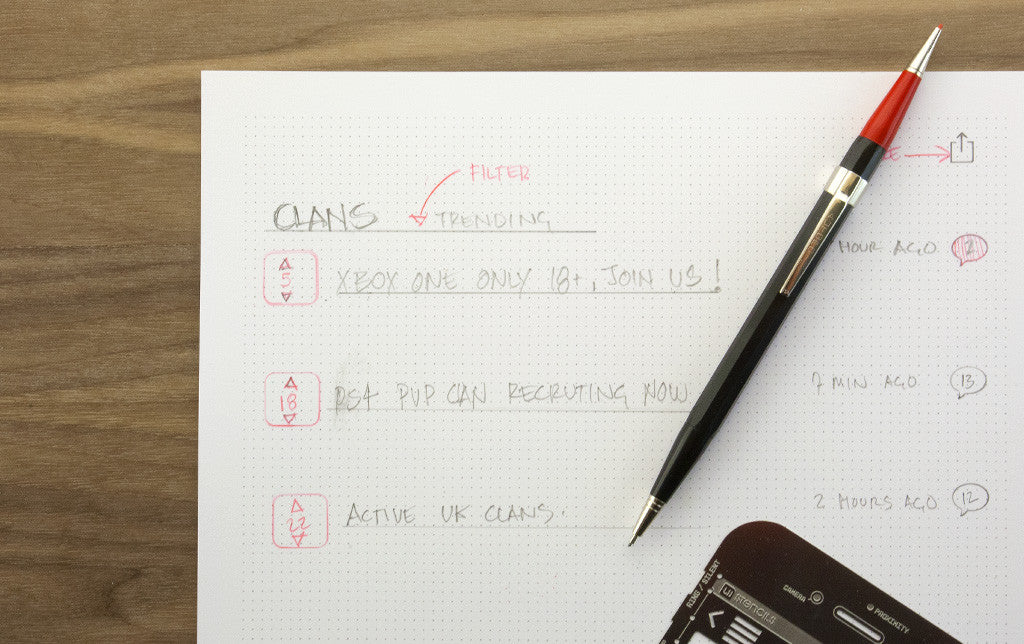 FILTER
CLANS TRENDING
HOUR AGO 2
5 XBOX ONE ONLY 18+, JOIN US!
7 MIN AGO 13
18 PS4 PVP CAN RECRUTING NOW
2 HOURS AGO 12
22 ACTIVE UK CLANS.
RING / SILENT
UI STENCILS
CAMERA
PROXIMITY